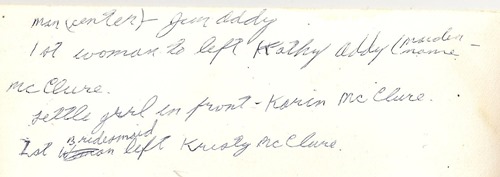 man (center) - Jim Addy
1st woman to left Kathy Addy (maiden name -
McClure.
Little girl in front - Karin McClure.
1st Bridesmaid left Kristy McClure.